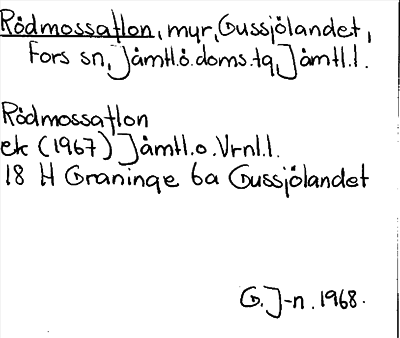 Rödmossaflon, myr, Gussjölandet,
Fors sn, Jämtl.ö.doms.tg, Jämtl.l.
Rödmossaflon
ek (1967) Jämtl.o.Vrnl.l.
18 H Graninge 6a Gussjölandet
G. J-n. 1968.